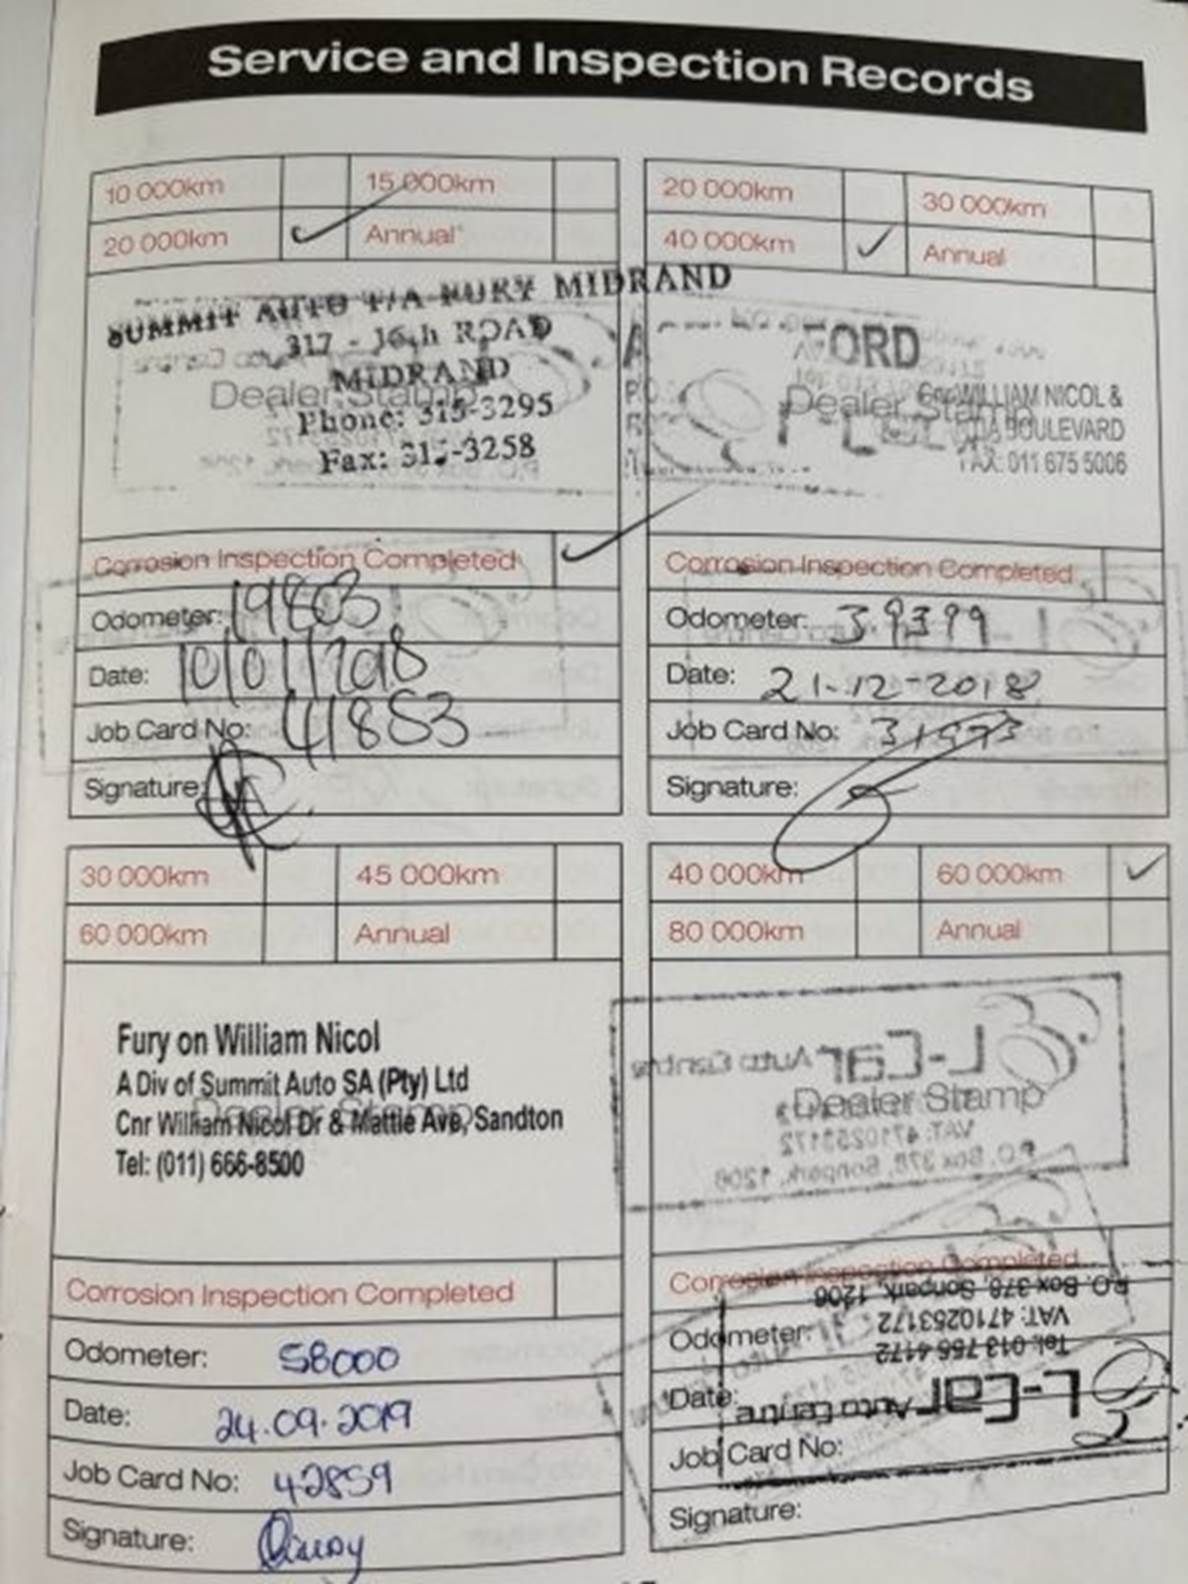 Service and Inspection Records
10 000km 15 000km
20 000km Annual*
SUMMIT AUTO T/A FURY MIDRAND
317 - 16th ROAD
MIDRAND
Dealer Stamp
Phone: 315-3295
Fax: 315-3258
Corrosion Inspection Completed
Odometer: 19803
Date: 10/01/2018
Job Card No: 41853
Signature:
20 000km 30 000km
40 000km Annual
FORD
Dealer Stamp
Cnr WILLIAM NICOL &
BOULEVARD
FAX: 011 675 5006
Corrosion Inspection Completed
Odometer: 39399
Date: 21-12-2018
Job Card No: 31973
Signature:
30 000km 45 000km
60 000km Annual
Fury on William Nicol
A Div of Summit Auto SA (Pty) Ltd
Dealer Stamp
Cnr William Nicol Dr & Mattie Ave, Sandton
Tel: (011) 666-8500
Corrosion Inspection Completed
Odometer: 58000
Date: 24.09.2019
Job Card No: 42859
Signature:
40 000km 60 000km
80 000km Annual
L-Car Auto Centre
Dealer Stamp
VAT: 4710253172
P.O. Box 378, Sonpark, 1206
Corrosion Inspection Completed
P.O. Box 378, Sonpark, 1206
VAT: 4710253172
Odometer:
Tel: 013 755 4172
Date:
L-Car Auto Centre
Job Card No:
Signature: